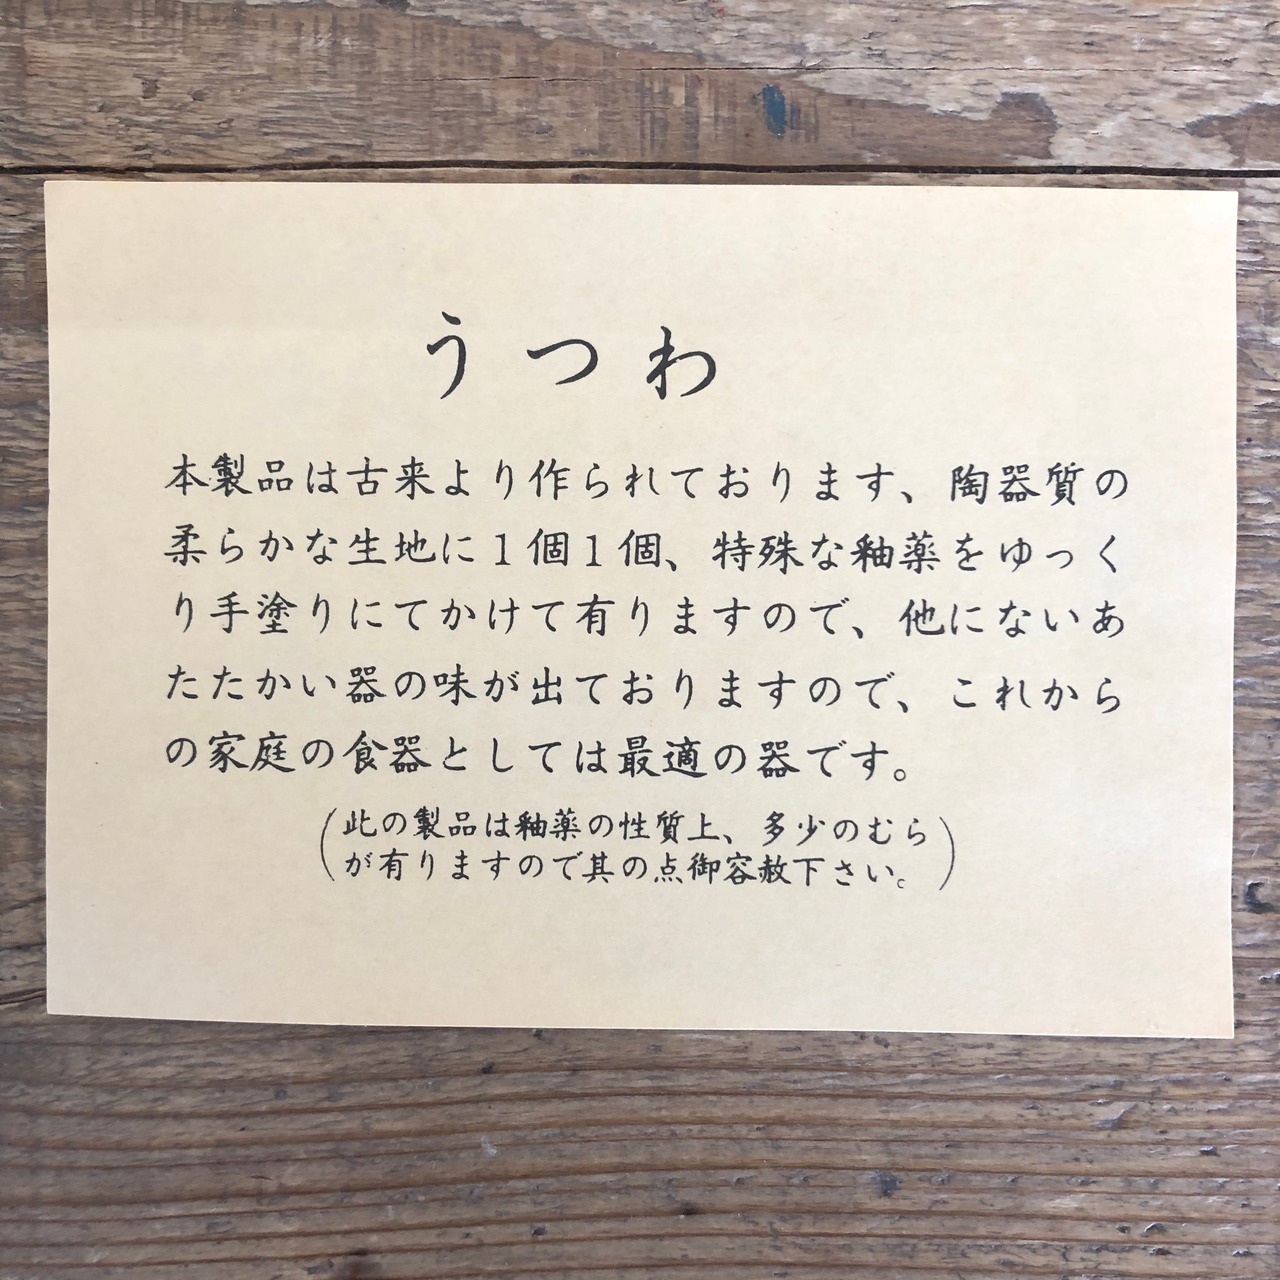 うつわ
本製品は古来より作られております、陶器質の
柔らかな生地に1個1個、特殊な釉薬をゆっく
り手塗りにてかけて有りますので、他にないあ
たたかい器の味が出ておりますので、これから
の家庭の食器としては最適の器です。
(此の製品は釉薬の性質上、多少のむら
が有りますので其の点御容赦下さい。)